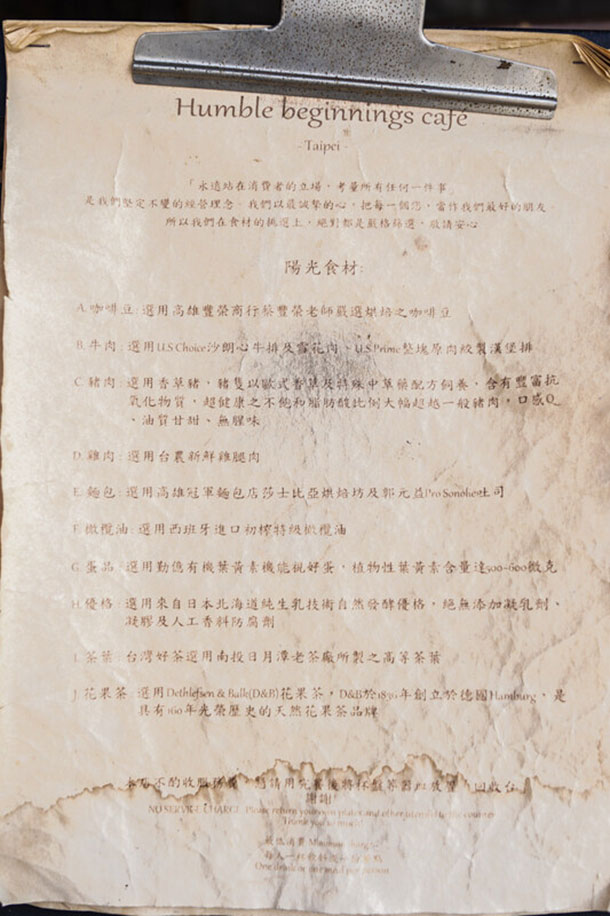 Humble beginnings café
- Taipei -
「永遠站在消費者的立場,考量所有任何一件事」
是我們堅定不變的經營理念。我們以最誠摯的心,把每一個您,當作我們最好的朋友。
所以我們在食材的挑選上,絕對都是嚴格篩選,敬請安心
陽光食材:
A.咖啡豆:選用高雄豐榮商行蔡豐榮老師嚴選烘焙之咖啡豆
B.牛肉:選用U.S Choice沙朗心牛排及雪花肉、U.S Prime整塊原肉絞製漢堡排
C.豬肉:選用香草豬,豬隻以歐式香草及特殊中草藥配方飼養,含有豐富抗
氧化物質,超健康之不飽和脂肪酸比例大幅超越一般豬肉,口感Q
、油質甘甜、無腥味
D.雞肉:選用台農新鮮雞腿肉
E.麵包:選用高雄冠軍麵包店莎士比亞烘焙坊及郭元益Pro Sonoko吐司
F.橄欖油:選用西班牙進口初榨特級橄欖油
G.蛋品:選用勤億有機葉黃素機能極好蛋,植物性葉黃素含量達500~600微克
H.優格:選用來自日本北海道純生乳技術自然發酵優格,絕無添加凝乳劑、
凝膠及人工香料防腐劑
I.茶葉:台灣好茶選用南投日月潭老茶廠所製之高等茶葉
J.花果茶:選用Dethlefsen & Balk(D&B)花果茶,D&B於1836年創立於德國Hamburg,是
具有160年光榮歷史的天然花果茶品牌
本店不酌收服務費,請用完餐後將杯盤等器皿放置 回收台
謝謝!
NO SERVICE CHARGE. Please return your own plates and other utensils to the counter
Thank you so much!
最低消費 Minimum charge:
每人一杯飲料或一份餐點
One drink or per meal per person